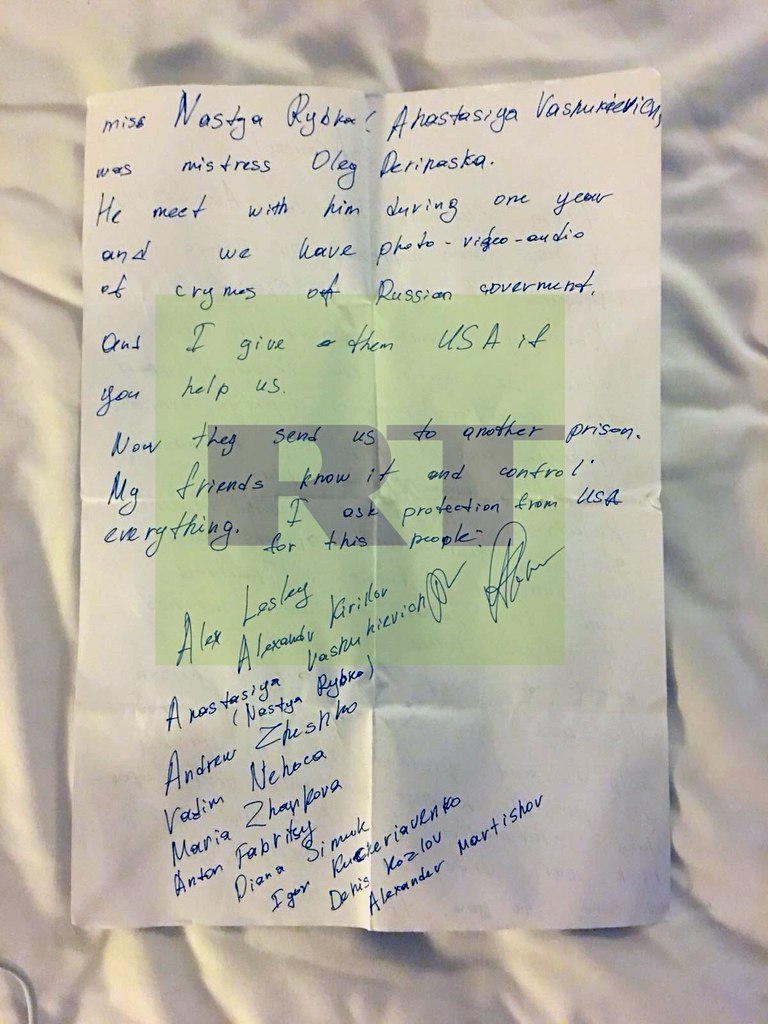 miss Nastya Rybka! Anastasiya Vashukievich,
was mistress Oleg Deripaska.
He meet with him during one year
and we have photo-video-audio
of crymes of Russian goverment.
and I give them USA if
you help us.
Now they send us to another prison.
My friends know it and control
everything. I ask protection from USA
for this people:
Alex Lesley
Alexandr Kirillov
Anastasiya Vashukievich
(Nastya Rybka)
Andrew Zheshko
Vadim Nehoca
Maria Zharkova
Anton Fabritsy
Diana Simuk
Igor Kucheriavenko
Denis Kozlov
Alexander Martishov
RT